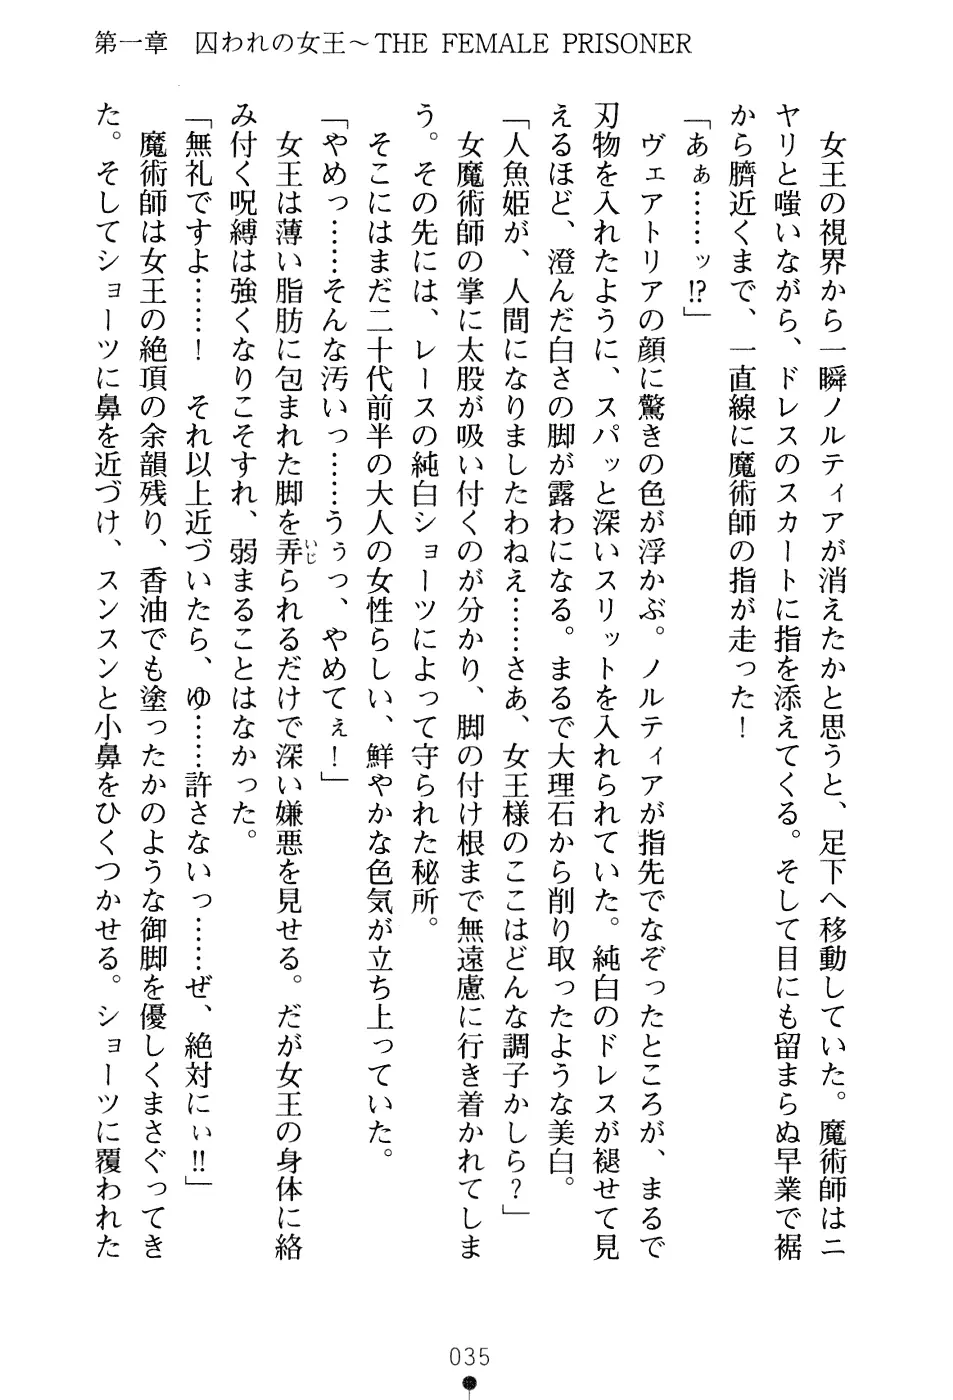 第一章　囚われの女王～THE FEMALE PRISONER
　女王の視界から一瞬ノルティアが消えたかと思うと、足下へ移動していた。魔術師はニ
ヤリと嗤いながら、ドレスのスカートに指を添えてくる。そして目にも留まらぬ早業で裾
から臍近くまで、一直線に魔術師の指が走った！
「あぁ……ッ!?」
　ヴェアトリアの顔に驚きの色が浮かぶ。ノルティアが指先でなぞったところが、まるで
刃物を入れたように、スパッと深いスリットを入れられていた。純白のドレスが褪せて見
えるほど、澄んだ白さの脚が露わになる。まるで大理石から削り取ったような美白。
「人魚姫が、人間になりましたわねえ……さあ、女王様のここはどんな調子かしら？」
　女魔術師の掌に太股が吸い付くのが分かり、脚の付け根まで無遠慮に行き着かれてしま
う。その先には、レースの純白ショーツによって守られた秘所。
　そこにはまだ二十代前半の大人の女性らしい、鮮やかな色気が立ち上っていた。
「やめっ……そんな汚いっ……うぅっ、やめてぇ！」
　女王は薄い脂肪に包まれた脚を弄（いじ）られるだけで深い嫌悪を見せる。だが女王の身体に絡
み付く呪縛は強くなりこそすれ、弱まることはなかった。
「無礼ですよ……！　それ以上近づいたら、ゆ……許さないっ……ぜ、絶対にぃ!!」
　魔術師は女王の絶頂の余韻残り、香油でも塗ったかのような御脚を優しくまさぐってき
た。そしてショーツに鼻を近づけ、スンスンと小鼻をひくつかせる。ショーツに覆われた
035